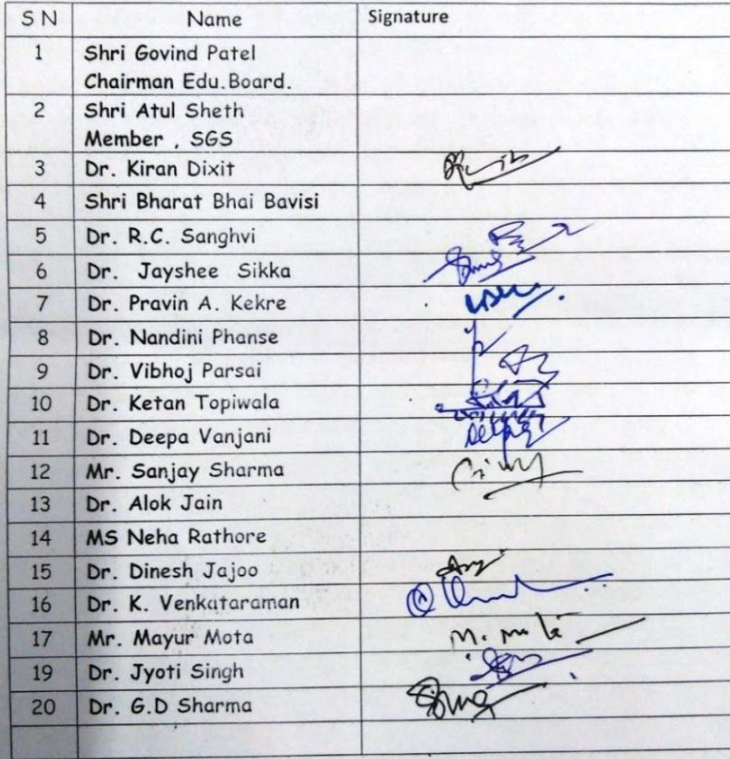 S N Name Signature
1 Shri Govind Patel
Chairman Edu.Board.
2 Shri Atul Sheth
Member , SGS
3 Dr. Kiran Dixit
4 Shri Bharat Bhai Bavisi
5 Dr. R.C. Sanghvi
6 Dr. Jayshee Sikka
7 Dr. Pravin A. Kekre
8 Dr. Nandini Phanse
9 Dr. Vibhoj Parsai
10 Dr. Ketan Topiwala
11 Dr. Deepa Vanjani
12 Mr. Sanjay Sharma
13 Dr. Alok Jain
14 MS Neha Rathore
15 Dr. Dinesh Jajoo
16 Dr. K. Venkataraman
17 Mr. Mayur Mota
19 Dr. Jyoti Singh
20 Dr. G.D Sharma